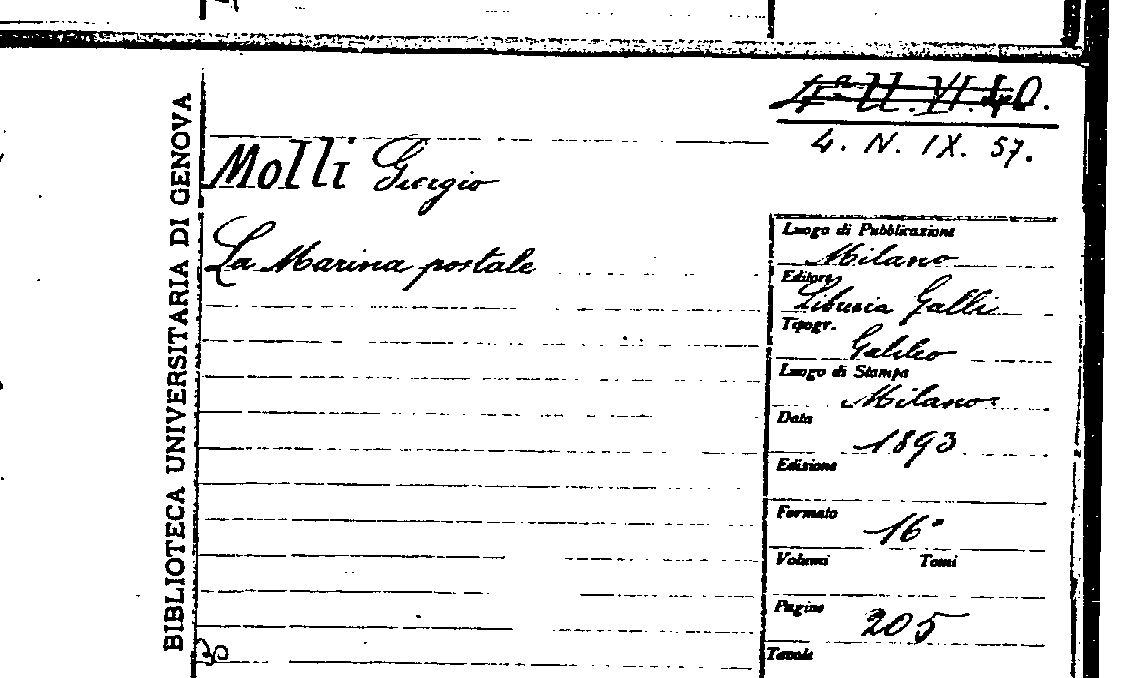 4. N. IX. 57.
Molli Giorgio
La Marina postale
BIBLIOTECA UNIVERSITARIA DI GENOVA
Luogo di Pubblicazione
Milano
Editore
Libreria Galli
Tipogr.
Galileo
Luogo di Stampa
Milano
Data
1893
Edizione
Formato
16°
Volumi Tomi
Pagine
205
Tavole
30